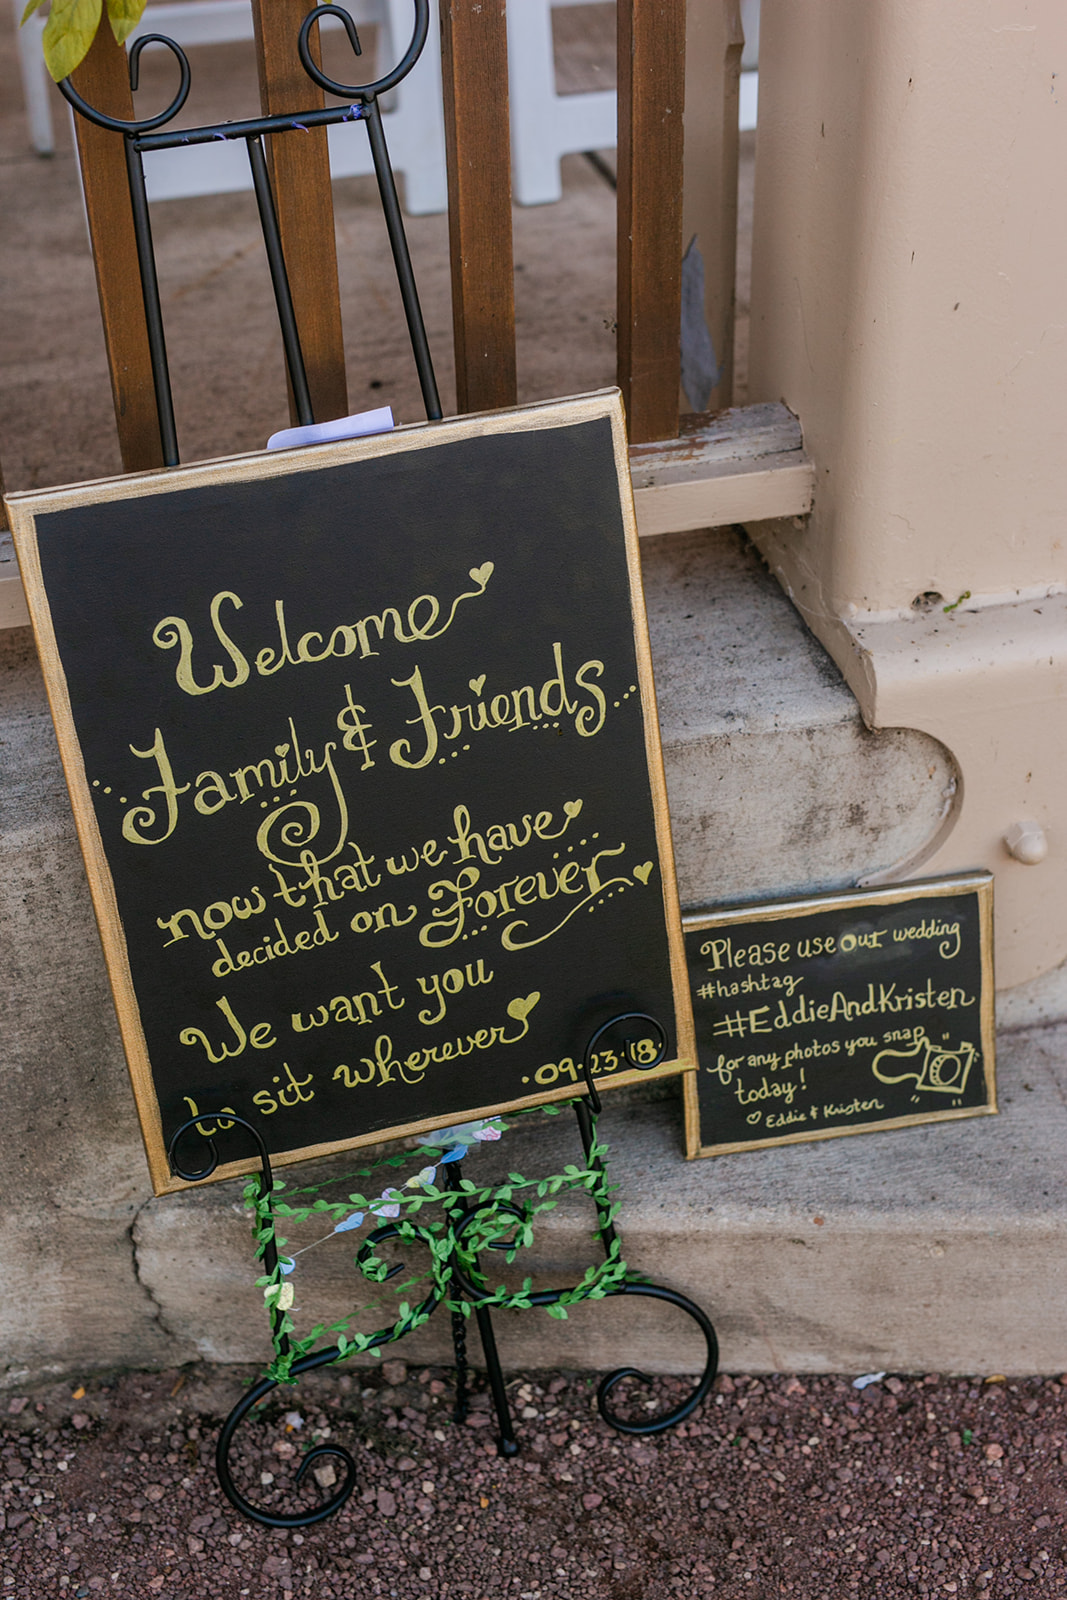 Welcome
Family & Friends
now that we have
decided on Forever
We want you
to sit wherever
09.23.18
Please use our wedding
#hashtag
#EddieAndKristen
for any photos you snap
today!
Eddie & Kristen